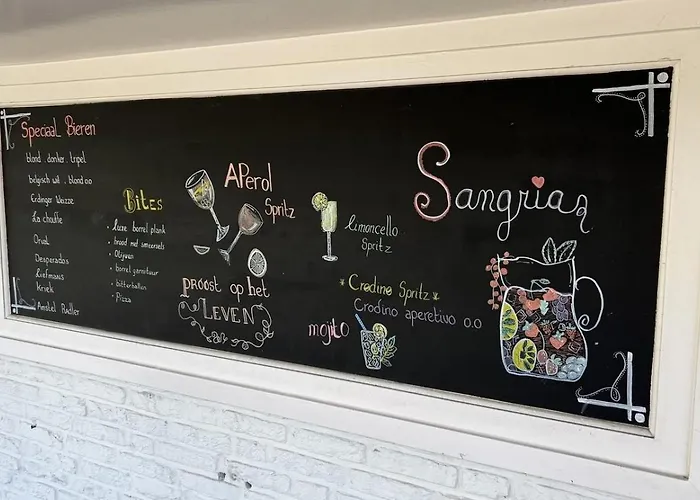 Speciaal Bieren
blond . donker . tripel
belgisch wit . blond 0.0
Erdinger Weizze
La chouffe
Orval
Desperados
Liefmans
Kriek
Amstel Radler
Bites
• Luxe borrel plank
• brood met smeersels
• Olijven
• borrel garnituur
• bitterballen
• Pizza
APerol
Spritz
proost op het
LEVEN
limoncello
Spritz
*Crodino Spritz*
Crodino aperetivo 0.0
mojito
Sangria